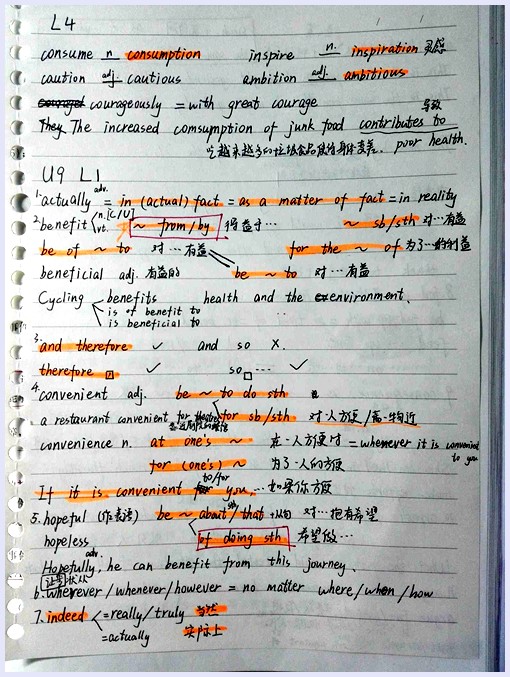 L4
consume n consumption inspire n. inspiration 灵感
caution adj. cautious ambition adj. ambitious
courageously = with great courage
They The increased comsumption of junk food contributes to 导致
吃越来越多的垃圾食品使得身体变差. poor health.
U9 L1
1. actually adv. = in (actual) fact = as a matter of fact = in reality
2. benefit n.[C/U] vt. ~ from/by 得益于… ~ sb/sth 对…有益
be of ~ to 对…有益 for the ~ of 为了…的利益
beneficial adj. 有益的 be ~ to 对…有益
Cycling benefits health and the environment.
is of benefit to
is beneficial to
3. and therefore ✓ and so ×.
therefore so … ✓
4. convenient adj. be ~ to do sth
a restaurant convenient for for sb/sth 对…方便/离…近
convenience n. at one's ~ 在…人方便时 = whenever it is convenient to you
for (one's) ~ 为了…人的方便
If it is convenient to/for you,… 如果你方便
5. hopeful (作表语) be ~ about sth/that +从句 对…抱有希望
hopeless of doing sth 希望做…
Hopefully, adv. he can benefit from this journey.
让步状从
6. wherever/whenever/however = no matter where/when/how
7. indeed = really/truly 当然
= actually 实际上